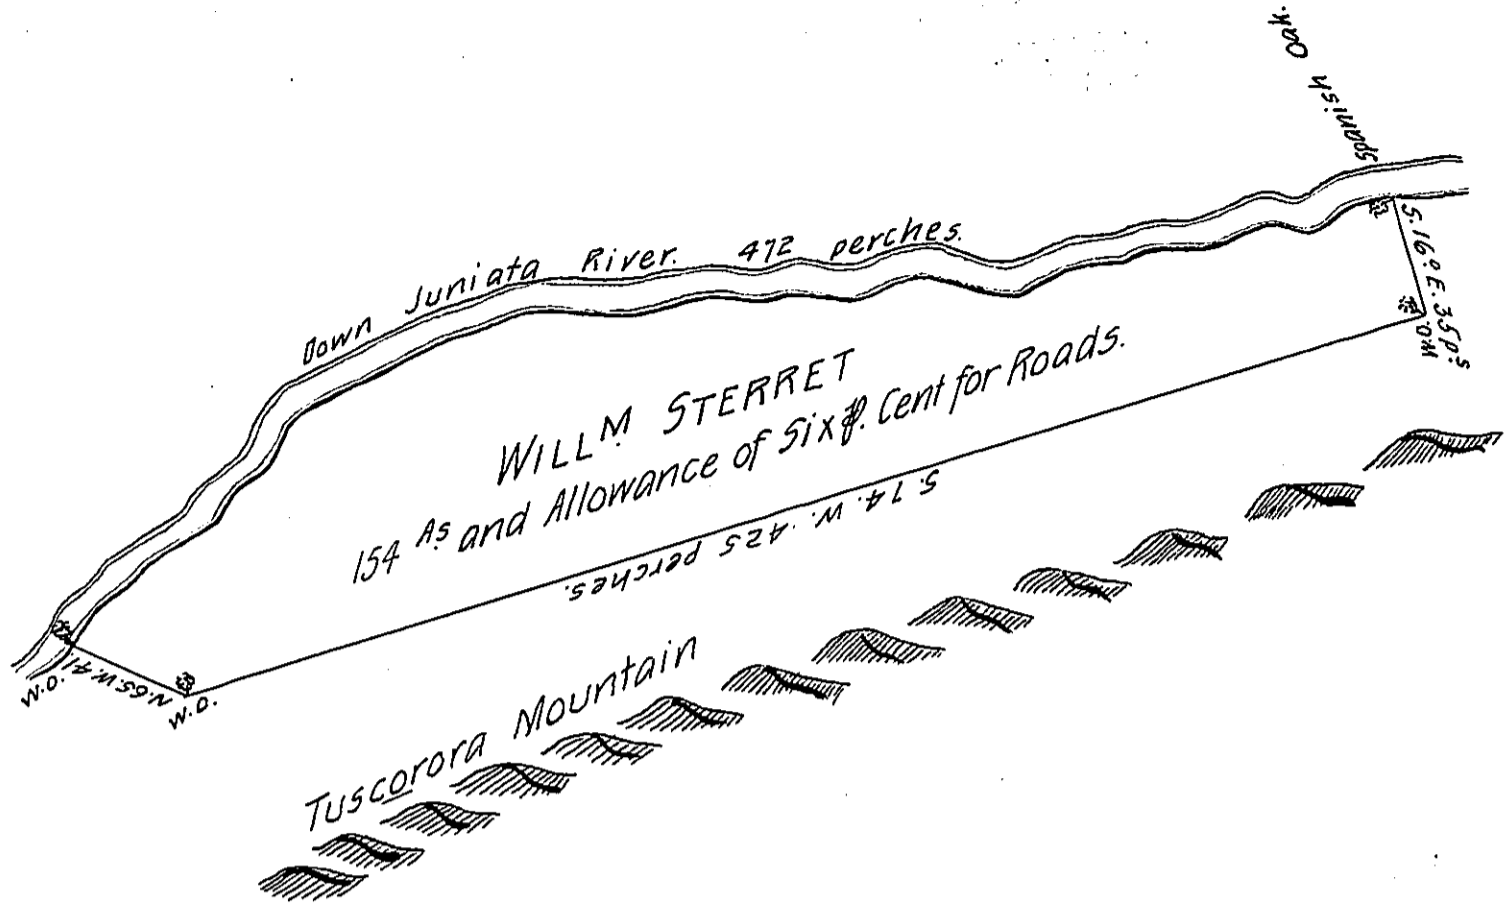 Spanish Oak.
Down Juniata River. 472 perches.
S. 16° E. 35 ps
W.O.
WILLM STERRET
154 As and Allowance of Six ₱. Cent for Roads.
S. 74. W. 425 perches.
N. 65 W. 41.
W.O.
W.O.
Tuscorora Mountain